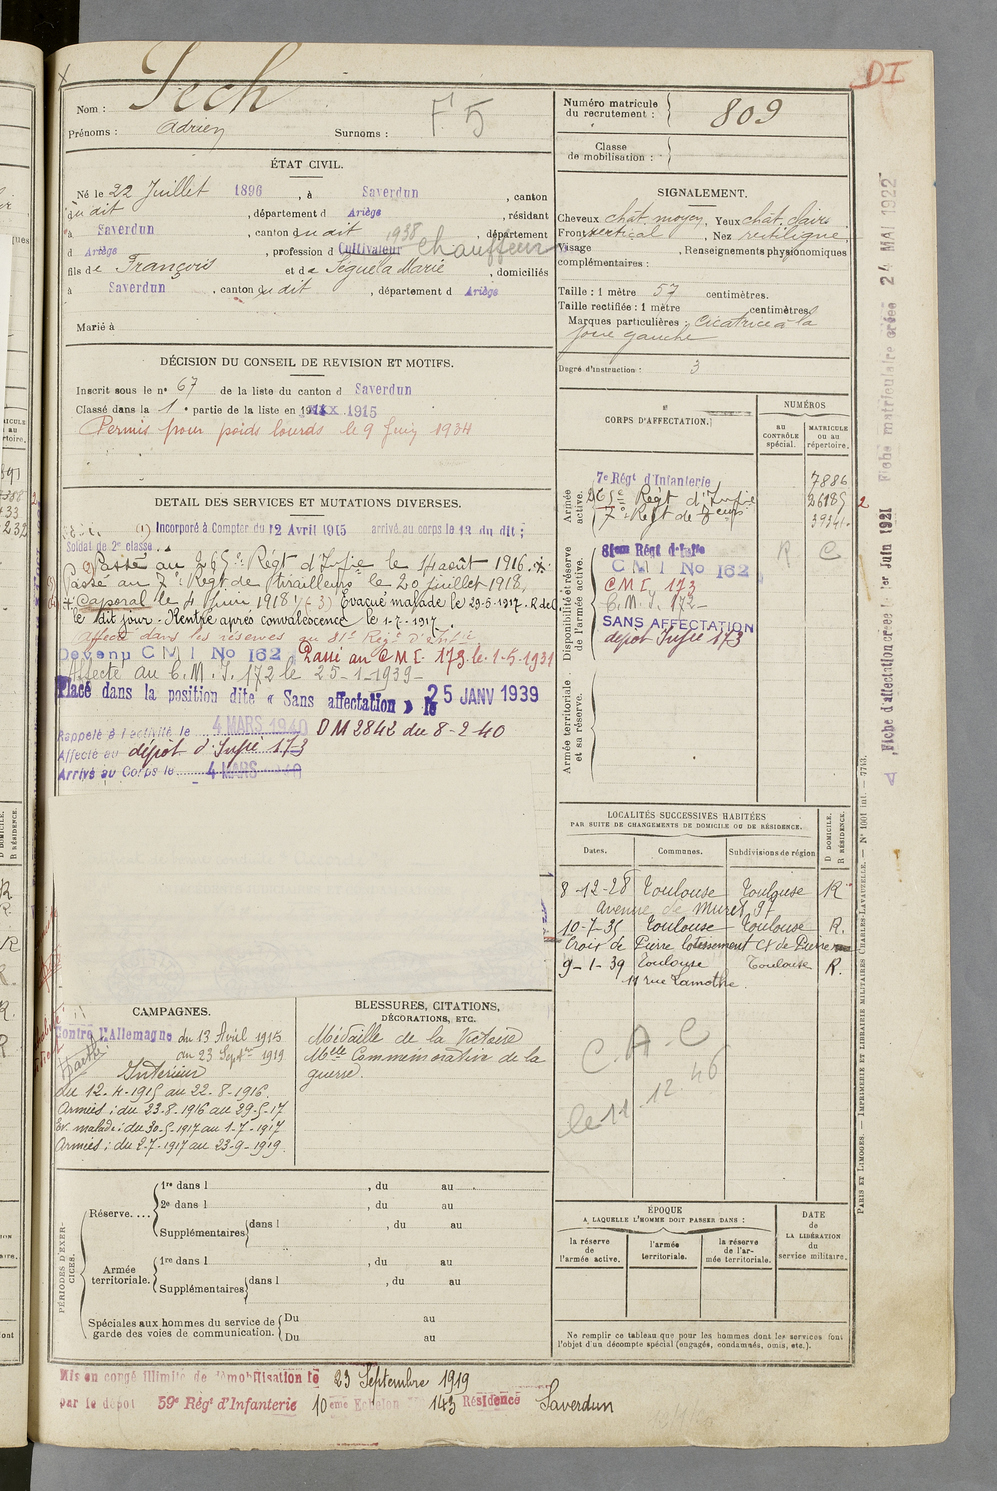 DI
Nom : Pech
Prénoms : Adrien Surnoms :
F 5
Numéro matricule
du recrutement : 809
Classe
de mobilisation :
ÉTAT CIVIL.
Né le 22 Juillet 1896, à Saverdun, canton
du dit, département d Ariège, résidant
à Saverdun, canton du dit 1938, département
d Ariège, profession d Cultivateur Chauffeur
fils de François et de Séguéla Marie, domiciliés
à Saverdun, canton du dit, département d Ariège
Marié à
SIGNALEMENT.
Cheveux chat. moyen, Yeux chat. clairs
Front vertical, Nez rectiligne,
Visage , Renseignements physionomiques
complémentaires :
Taille : 1 mètre 57 centimètres.
Taille rectifiée : 1 mètre centimètres
Marques particulières : Cicatrice à la
joue gauche
Degré d'instruction : 3
DÉCISION DU CONSEIL DE REVISION ET MOTIFS.
Inscrit sous le n° 67 de la liste du canton d Saverdun
Classé dans la 1e partie de la liste en 1915
Permis pour poids lourds le 9 Juin 1934
DETAIL DES SERVICES ET MUTATIONS DIVERSES.
(1) Incorporé à Compter du 12 Avril 1915 arrivé au corps le 13 du dit ;
Soldat de 2e classe.
(2) Passé au 265e Régt d'Infie le 14 août 1916.
Passé au 7e Régt de tirailleurs le 20 juillet 1918,
+ Caporal le 4 Juin 1918 / (3) Évacué malade le 29-5-1917. R del
le dit jour. Rentré après convalescence le 1-7-1917.
Affecté dans les réserves au 81e Régt d'Infie
Devenu CMI No 162 Passé au C M I. 173 le 1-5-1931
Affecté au C. M. I. 172 le 25-1-1939-
Placé dans la position dite « Sans affectation » le 25 JANV 1939
Rappelé à l'activité le 4 MARS 1940 DM 2842 du 8-2-40
Affecté au dépôt d'Infie 173
Arrivé au Corps le 4 MARS 1940
CORPS D'AFFECTATION.
NUMÉROS
AU CONTRÔLE spécial.
MATRICULE OU AU répertoire.
Armée active.
7e Régt d'Infanterie 7886
265e Régt d'Infie 26185
7e Régt de
Disponibilité et réserve de l'armée active.
81em Régt d'Infie R C
CMI No 162
C M I. 173
C. M. I. 172-
SANS AFFECTATION
dépôt Infie 173
Armée territoriale et sa réserve.
LOCALITÉS SUCCESSIVES HABITÉES
PAR SUITE DE CHANGEMENTS DE DOMICILE OU DE RÉSIDENCE.
Dates. Communes. Subdivisions de région D DOMICILE. R RÉSIDENCE.
8-12-28 Toulouse Toulouse R
Avenue de Muret 97
10-7-35 Toulouse Toulouse R.
Croix de Pierre lotissement Cx de Pierre
9-1-39 Toulouse Toulouse R.
11 rue Lamothe.
C. A. C
le 11 12. 46
CAMPAGNES.
Contre l'Allemagne du 13 Avril 1915
au 23 Septbre 1919
Intérieur
du 12-4-1915 au 22-8-1916.
Armées : du 23-8-1916 au 29-5-17
Ev. malade : du 30-5-1917 au 1-7-1917
Armées : du 2-7-1917 au 23-9-1919.
BLESSURES, CITATIONS,
DÉCORATIONS, ETC.
Médaille de la Victoire
Mlle Commémorative de la
guerre.
PÉRIODES D'EXERCICES.
Réserve....
1re dans l , du au
2e dans l , du au
Supplémentaires dans l , du au
Armée territoriale.
1re dans l , du au
Supplémentaires dans l , du au
Spéciales aux hommes du service de garde des voies de communication.
Du au
Du au
ÉPOQUE
A LAQUELLE L'HOMME DOIT PASSER DANS :
la réserve de l'armée active.
l'armée territoriale.
la réserve de l'armée territoriale.
DATE
de
LA LIBÉRATION
du
service militaire.
Ne remplir ce tableau que pour les hommes dont les services font
l'objet d'un décompte spécial (engagés, condamnés, omis, etc.).
Mis en congé illimité de démobilisation le 23 Septembre 1919
par le dépôt 59e Régt d'Infanterie 10 eme Echelon 143 Résidence Saverdun
Fiche d'affectation créée le 1er Juin 1921 Fiche matriculaire créée 24 MAI 1922
PARIS ET LIMOGES. — IMPRIMERIE ET LIBRAIRIE MILITAIRES CHARLES-LAVAUZELLE. — N° 1001 int. — 7763.